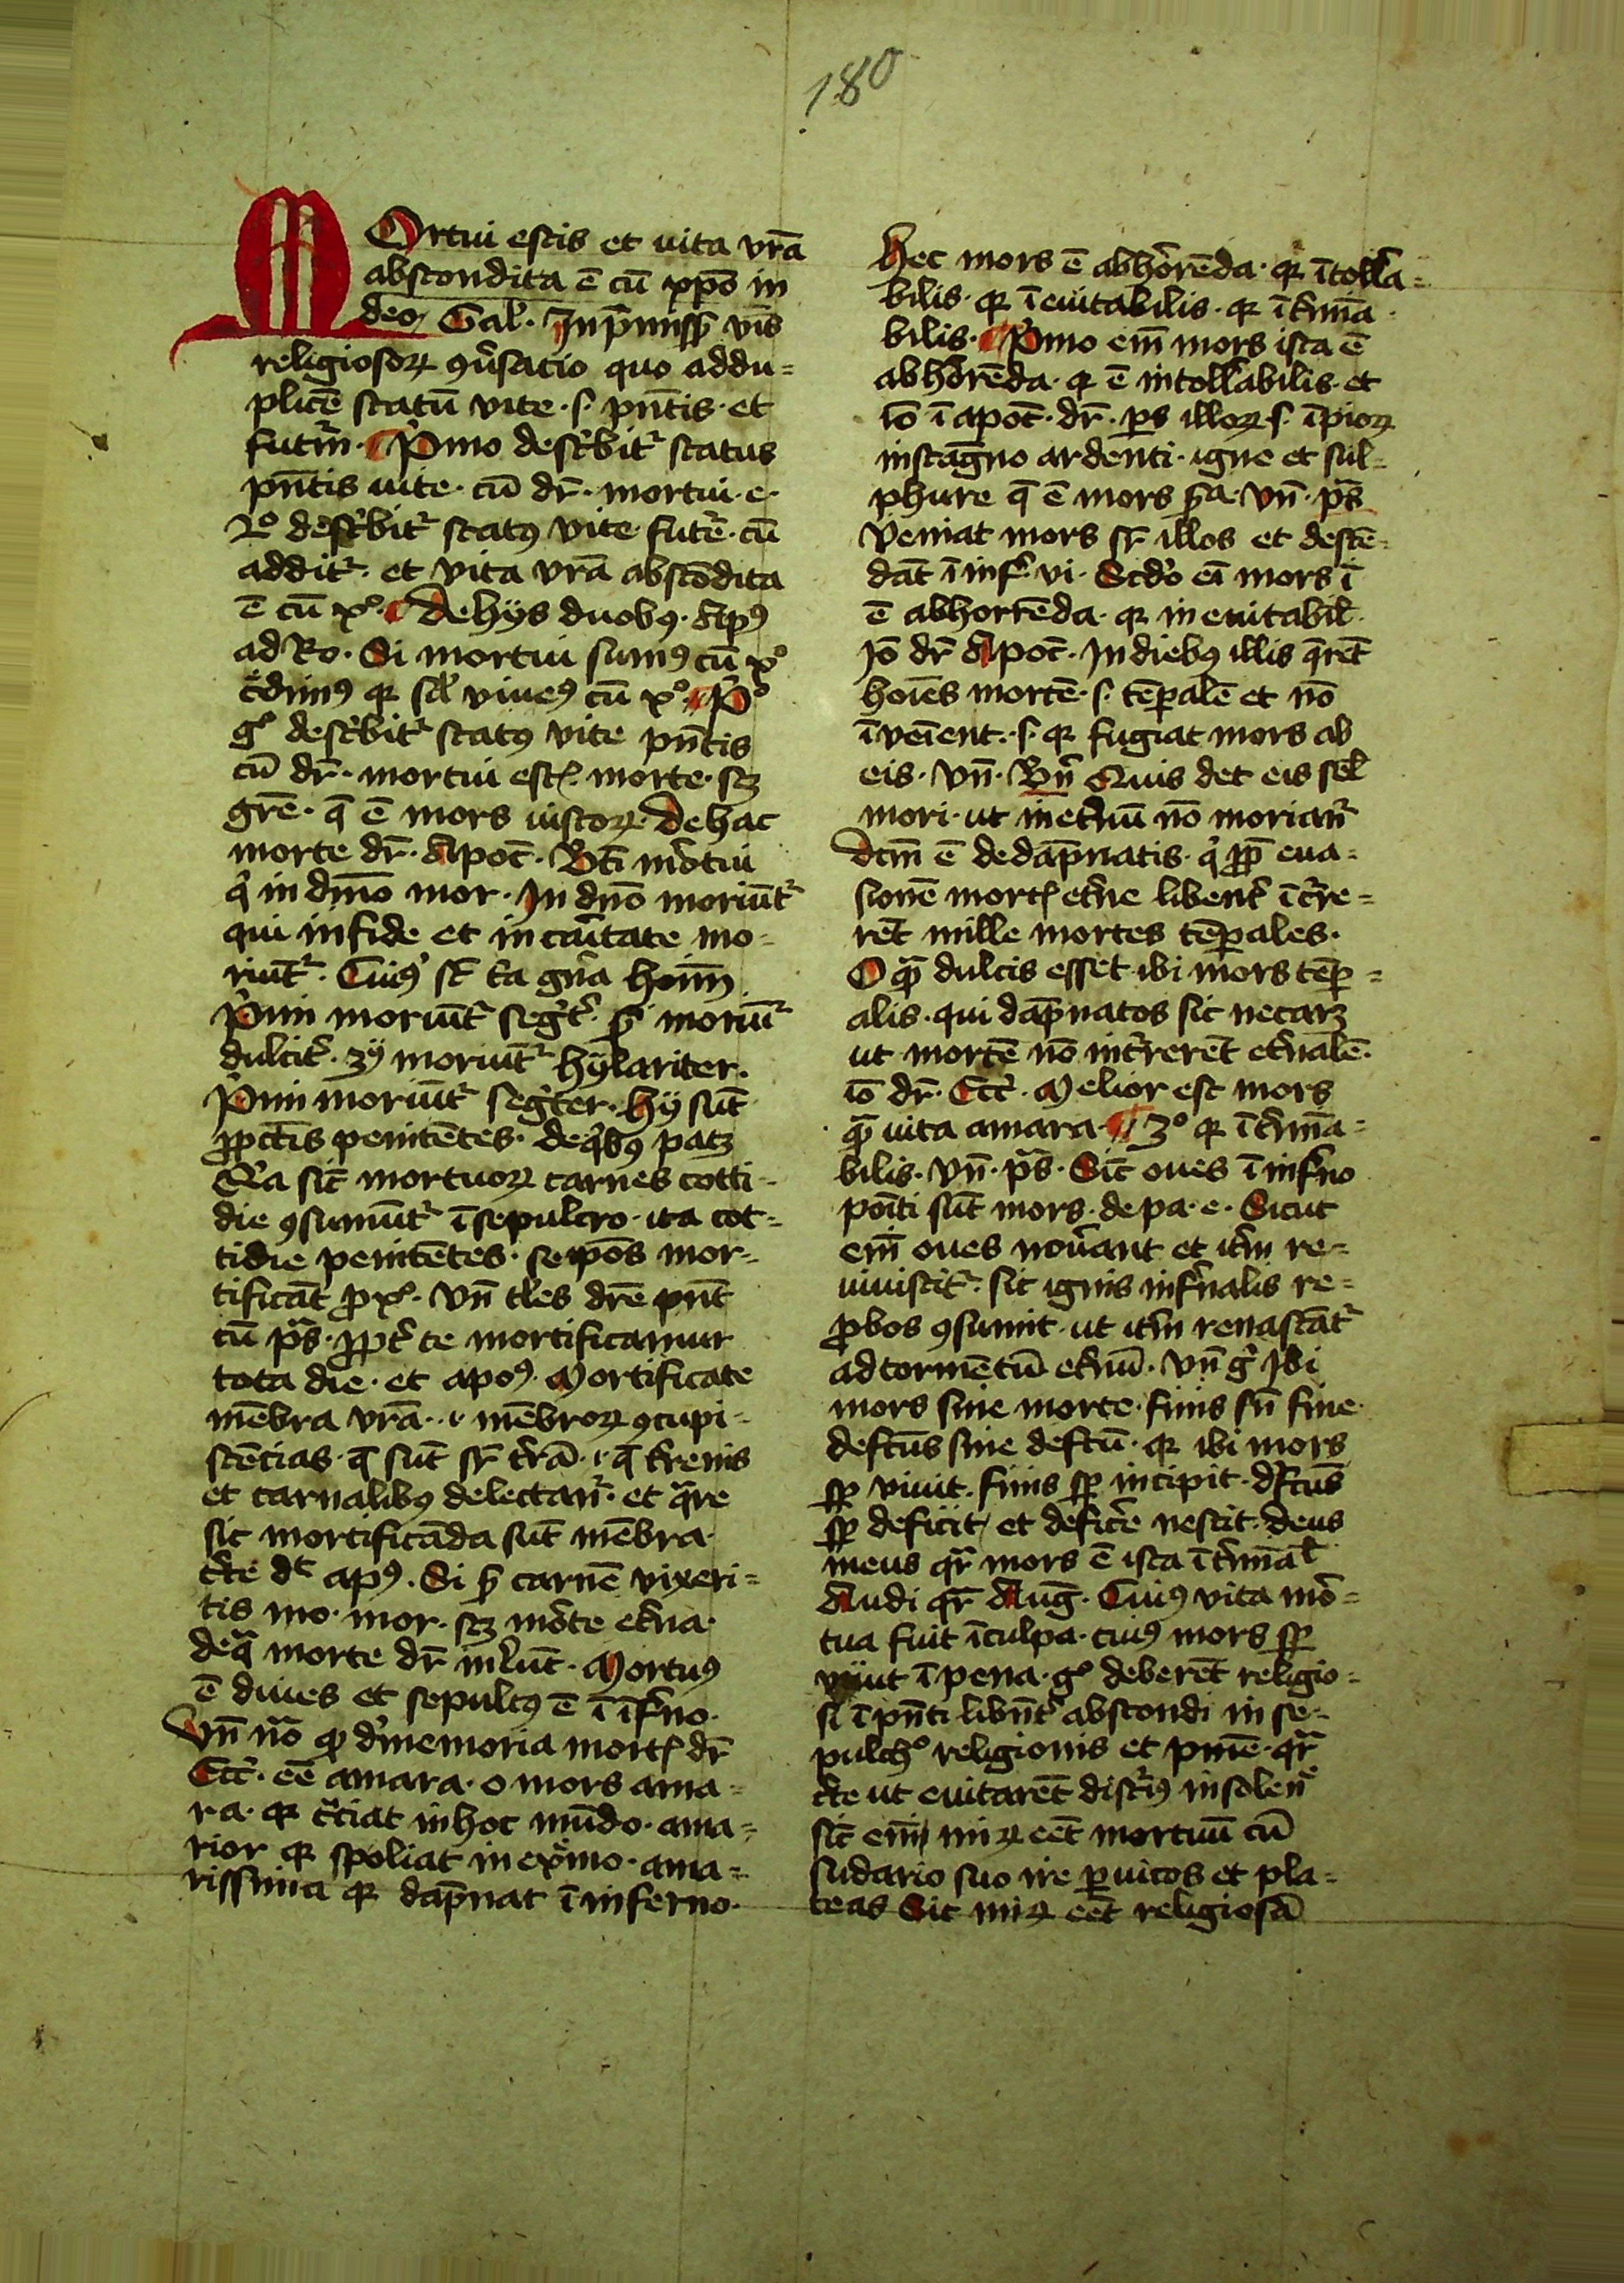 180
MOrtui estis et uita vrā
abscondita ē cū xpō in
deo Gal'. In p̄missis vīs
religiosoꝝ ꝯu̾satio quo ad du=
plicē statū vite .s. pn̄tis et
futur̄. Pͥmo descͥbitᷣ status
pn̄tis uite. cū dr̄. mortui .e.
2º descͥbitᷣ statꝰ vite futur̄. cū
additᷣ. et vita vrā abscōdita
ē cū xº. De hijs duobꝰ. Apꝰ
ad Ro. Si mortui sumꝰ cū xº
c̾dimꝰ qꝛ sil' viuēꝰ cū xº. Pͥº
gº descͥbitᷣ statꝰ vite pn̄tis
cū dr̄. mortui estꝭ morte. sꝫ
gr̄e. q̄ ē mors iustoꝝ. De hac
morte dr̄. Apoc̄. Bt̄i mortui
qͥ in dn̄o mor. In dn̄o moriūtᷣ
qui in fide et in caͥtate mo=
riūtᷣ. Cuiꝰ st̄ tͥa gn̄a hoīm
Pͥmi moriūtᷣ segͥt̾. sͥ moriūtᷣ
dulcit̾. 3ij moriūtᷣ hylariter.
Pͥmi moriūtᷣ segͥter. hij sūt
penitētes. de qͥbꝰ patꝫ
Qͥa sic̄ mortuoꝝ carnes cotti=
die ꝯsumūtᷣ ī sepulcro. ita cot=
tidie penitētes. seipōs mor=
tificāt ꝓ xº. vn̄ tles dr̄e pn̄t
cū pˢ. ꝓpt̾ te mortificamur
tota die. et apoꝰ. Mortificate
mēbra vrā. .i. mēbroꝝ ꝯcupi=
scētias. q̄ sūt sr̄ tr̄ā .i. q̄ tr̄enis
et carnalibꝰ delectanᷣ. et qᷓre
sic mortificāda sūt mēbra
dt̄ apꝰ. Si carnē vixeri=
tis mo. mor. sꝫ morte et̾na.
de qᷓ morte dr̄ . Mortuꝰ
ē diues et sepultꝰ ē ī īf̾no.
vn̄ nō memoria mortꝭ dr̄
Ecc̄. eē amara. o mors ama=
ra. qꝛ cͣciat in hoc mūdo. ama=
rior qꝛ spoliat in ex̾mo. ama=
rissima qꝛ dāpnat ī inferno.
Hec mors ē abhorrēda. qꝛ ītoll'a=
bilis. qꝛ īeuitabilis. qꝛ īt̾mīa
bilis. Pͥmo em̄ mors ista ē
abhorrēda. qꝛ ē intoll'abilis. et
iō ī apoc̄. dr̄. ps illoꝝ .s. īpioꝝ
in stāgno ardenti. igne et sul=
phure q̄ ē mors sͣ. vn̄. pˢ
Veniat mors sr̄ illos et descē=
dāt ī inf̾. vi. Scdo eī mors ī
ē abhorrēda. qꝛ ineuitabil'.
Iō dr̄ Apoc̄. In diebꝰ illis q̄rēt
hoīes mortē .s. tēpalē et nō
īueīent. .s. qꝛ fugiat mors ab
eis. Vn̄. Bn̄ Quis det eis sel'
mori. ut in et̾nū nō morianᷣ
dcm̄ ē de dāpnatis. qͥ ꝓp̄ eua=
sionē mortꝭ et̾ne libent̾ īcͥre=
rēt mille mortes tēpales.
O qᷓ dulcis esset ibi mors tēp=
alis. qui dāpnatos sic necarꝫ
ut mortē nō incͥrerēt et̾nalē.
iō dr̄. Ecc̄. Melior est mors
qᷓ uita amara. 3º qꝛ īt̾mīa=
bilis. vn̄. pˢ. Sic̄ oues ī inf̾no
poīti sūt mors. depa. e. Sicut
em̄ oues et it̾m re=
uiuiscitᷣ. sic ignis inf̾nalis re=
ꝓbos ꝯsumit. ut it̾m renascātᷣ
ad tormētū et̾nū. vn̄ gͥ Ibi
mors sine morte. finis sn̄ fine
defectus sine defectu. qꝛ ibi mors
sꝑ viuit. finis sꝑ incipit. defectus
sꝑ deficit et defic̾e nescit. deus
meus qꝛ mors ē ista īt̾mīal'
Audi qꝛ Aug̾. Cuiꝰ vita mor=
tua fuit ī culpa. cuiꝰ mors sꝑ
viuit ī pena. gº deberēt religio=
si ī pn̄ti libent̾ abscondi in se=
pulchº religionis et pn̄ie. qꝛ
ut euitarēt insolen
sic̄ em̄ miꝝ eēt mortuū cū
sudario suo ire ꝑ uicos et pla=
teas Sic miꝝ eēt religiosū